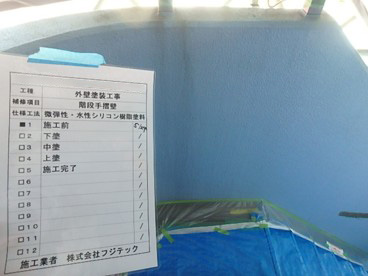 工種 外壁塗装工事
補修項目 階段手摺壁
仕様工法 微弾性・水性シリコン樹脂塗料
■1 施工前
□2 下塗 /
□3 中塗 /
□4 上塗 /
□5 施工完了 /
□6 /
□7 /
□8 /
□9 /
□10 /
□11 /
□12 /
施工業者 株式会社フジテック